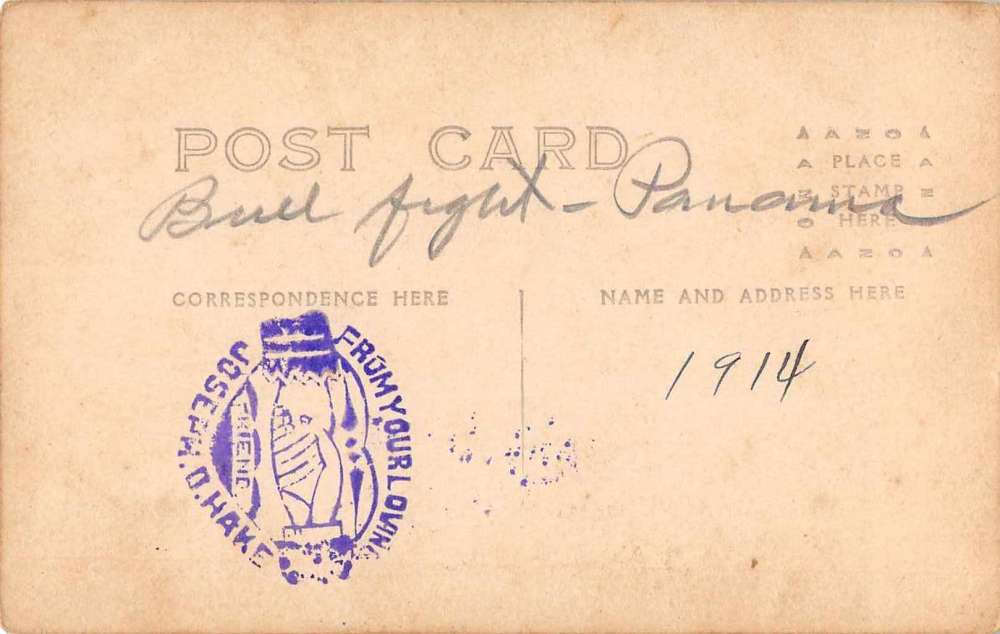 POST CARD
AZO
PLACE
STAMP
HERE
AZO
Bull fight - Panama
CORRESPONDENCE HERE
NAME AND ADDRESS HERE
1914
FROM YOUR LOVING
FRIEND
JOSEPH. O. HAKE